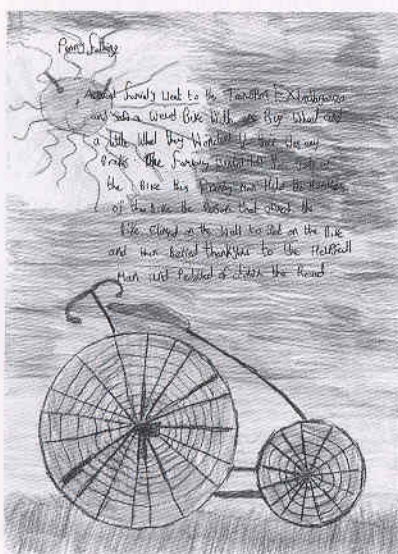 Penny farthing
family went to the Transport Exhibition
and saw a Weird Bike With one Big Wheel and
a little Wheel they Wondered if there Was any
Brakes the
the Bike this man Held the Handlebars
of the Bike the Person that owned the
Bike climed on the Wall to Get on the Bike
and then thankyou to the
Man and Pedaled of down the Road